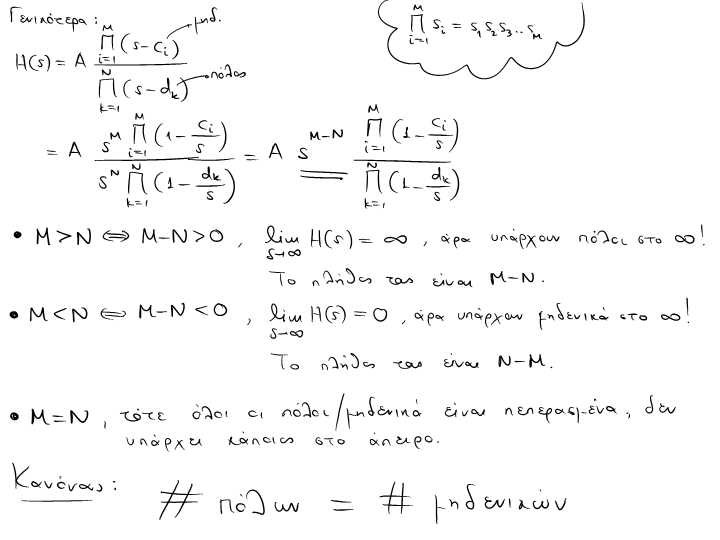 Γενικότερα:
∏_{i=1}^{M} s_i = s_1 s_2 s_3 .. s_M
H(s) = A \frac{∏_{i=1}^{M} (s - c_i)}{∏_{k=1}^{N} (s - d_k)}
μηδ.
πόλος
= A \frac{s^M ∏_{i=1}^{M} (1 - \frac{c_i}{s})}{s^N ∏_{k=1}^{N} (1 - \frac{d_k}{s})} = A s^{M-N} \frac{∏_{i=1}^{M} (1 - \frac{c_i}{s})}{∏_{k=1}^{N} (1 - \frac{d_k}{s})}
• M>N ⟺ M-N>0, lim_{s→∞} H(s) = ∞, άρα υπάρχουν πόλοι στο ∞!
Το πλήθος τους είναι M-N.
• M<N ⟺ M-N<0, lim_{s→∞} H(s) = 0, άρα υπάρχουν μηδενικά στο ∞!
Το πλήθος τους είναι N-M.
• M=N, τότε όλοι οι πόλοι/μηδενικά είναι πεπερασμένα, δεν
υπάρχει κάποιος στο άπειρο.
Κανόνας: # πόλων = # μηδενικών